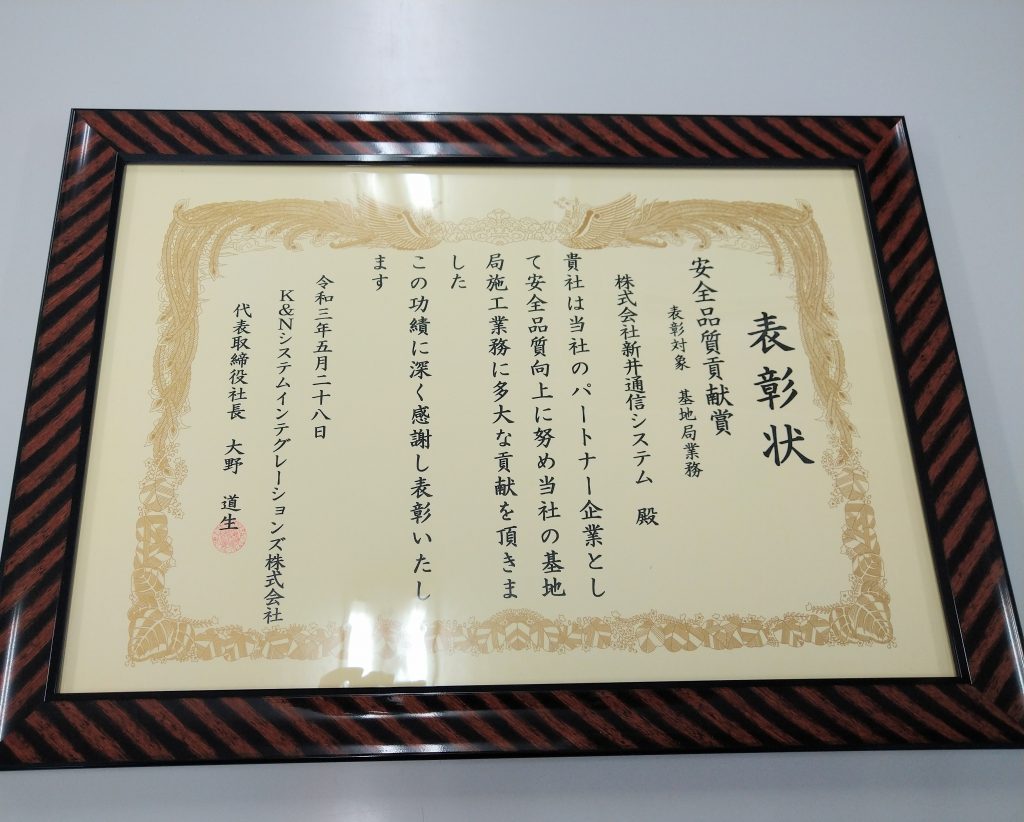 表彰状
安全品質貢献賞
表彰対象　基地局業務
株式会社新井通信システム　殿
貴社は当社のパートナー企業とし
て安全品質向上に努め当社の基地
局施工業務に多大な貢献を頂きま
した
この功績に深く感謝し表彰いたし
ます
令和三年五月二十八日
K&Nシステムインテグレーションズ株式会社
代表取締役社長　大野　道生